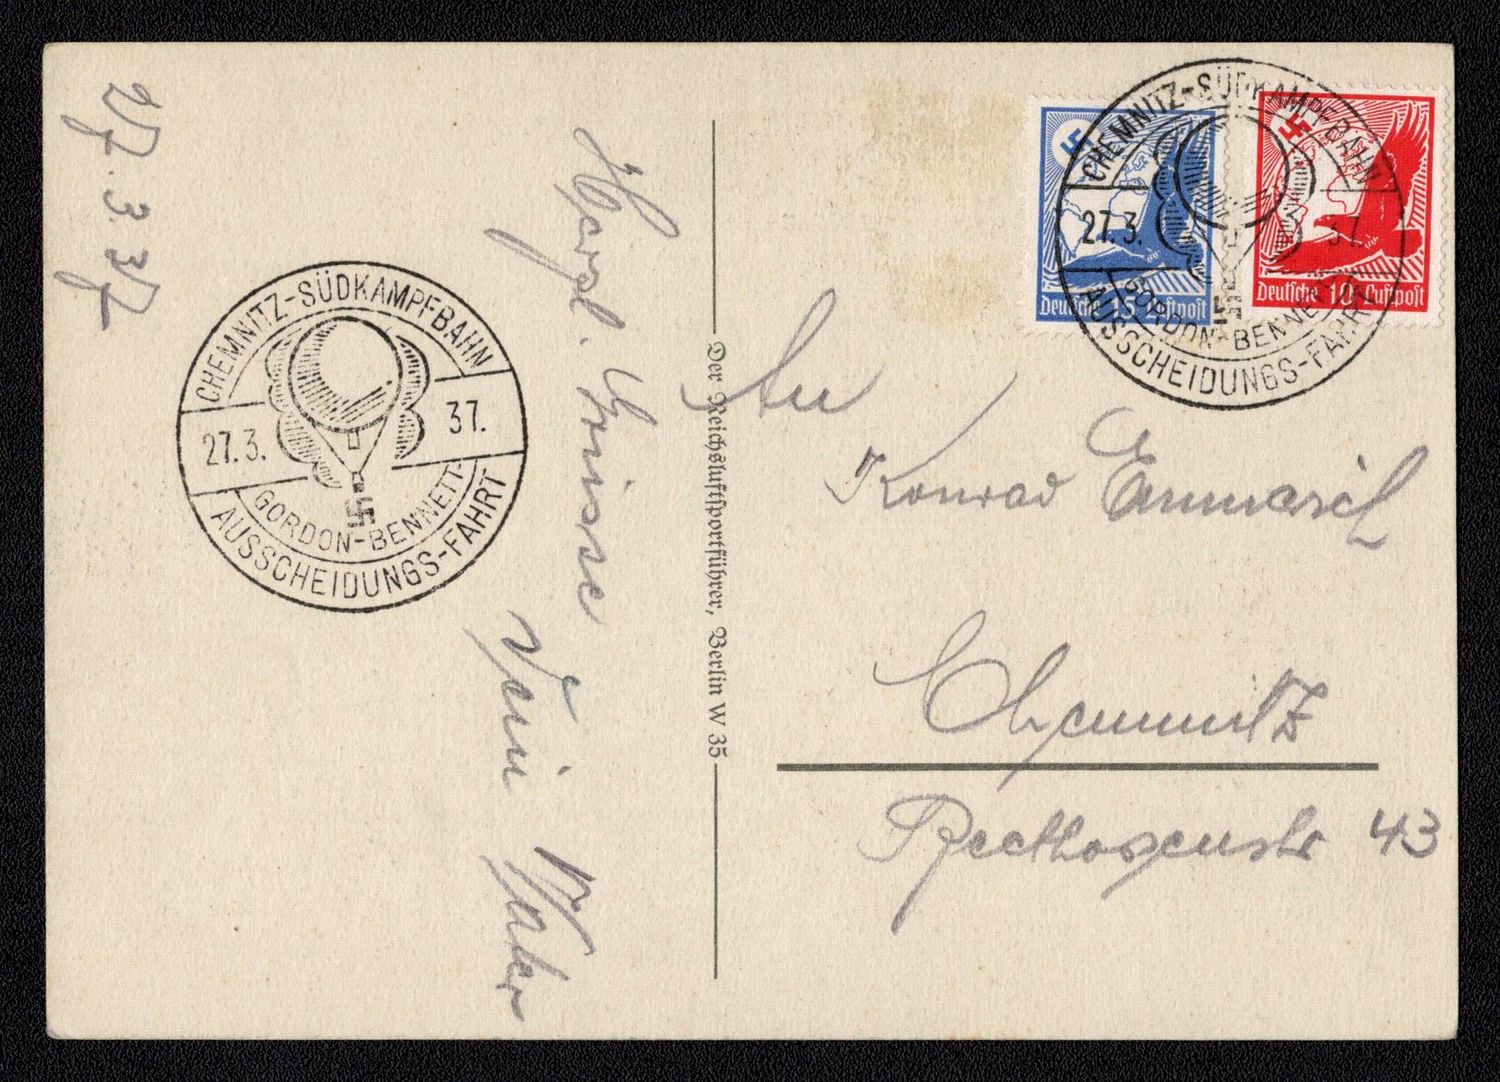 27.3.37
Herzl. Grüsse
Dein Vater
CHEMNITZ-SÜDKAMPFBAHN
27.3. 37.
GORDON-BENNETT-
AUSSCHEIDUNGS-FAHRT
Der Reichsluftsportführer, Berlin W 35
Deutsche 5 Luftpost
Deutsche 10 Luftpost
CHEMNITZ-SÜDKAMPFBAHN
27.3. 37.
GORDON-BENNETT-
AUSSCHEIDUNGS-FAHRT
An
Konrad
Chemnitz
Beethovenstr 43